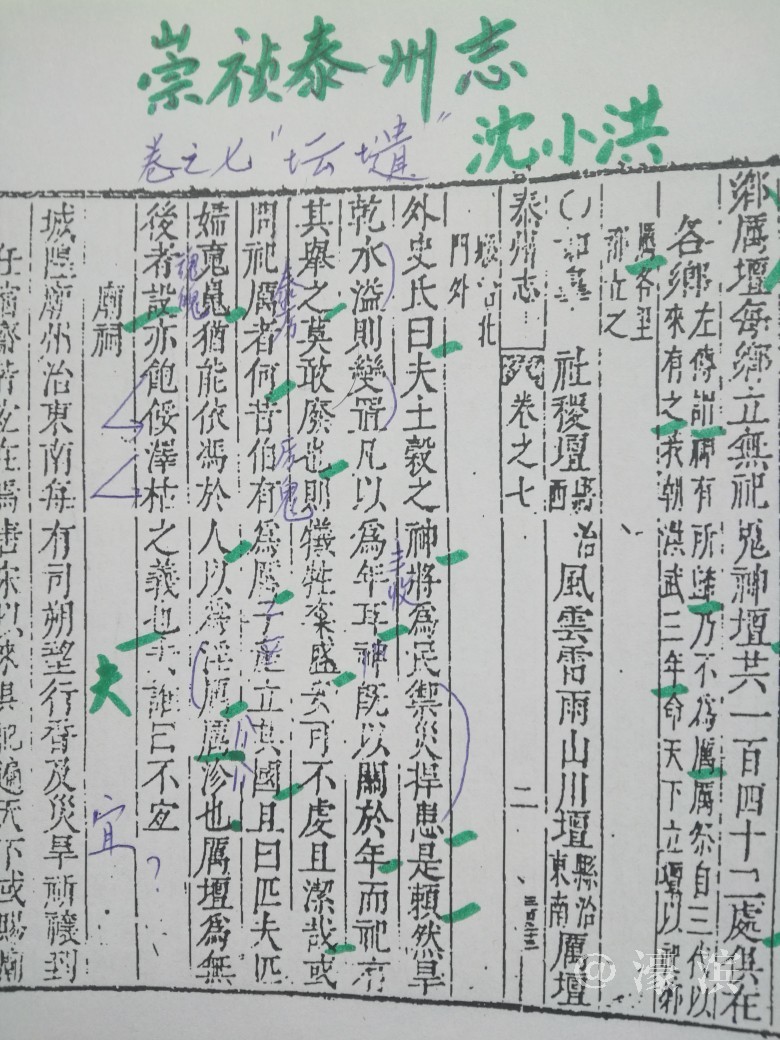 崇祯泰州志
沈小洪
卷之七"坛壝"
鄉厲壇每鄉立無祀鬼神壇共一百四十二處俱在
各鄉左傳謂神有所歸乃不為厲厲祭自三代以
來有之我朝洪武三年命天下立壇以祀
社稷壇縣治西風雲雷雨山川壇縣治東南厲壇
泰州志 卷之七 二
北
門外
外史氏曰夫土穀之神將為民禦災捍患是賴然旱
乾水溢則變置凡以為年耳神既以關於年而祀有
其舉之莫敢廢也則犧牲粢盛安可不虔且潔哉或
問祀厲者何昔伯有為厲子產立其國且曰匹夫匹
婦魂魄猶能依馮於人以為淫厲厲沴也厲壇為無
後者設亦飽餒澤枯之義也夫誰曰不宜
廟祠
城隍廟州治東南每有司朔望行香及災旱祈禳到
魂魄
厉鬼
丰收
夫
宜?
@濠滨